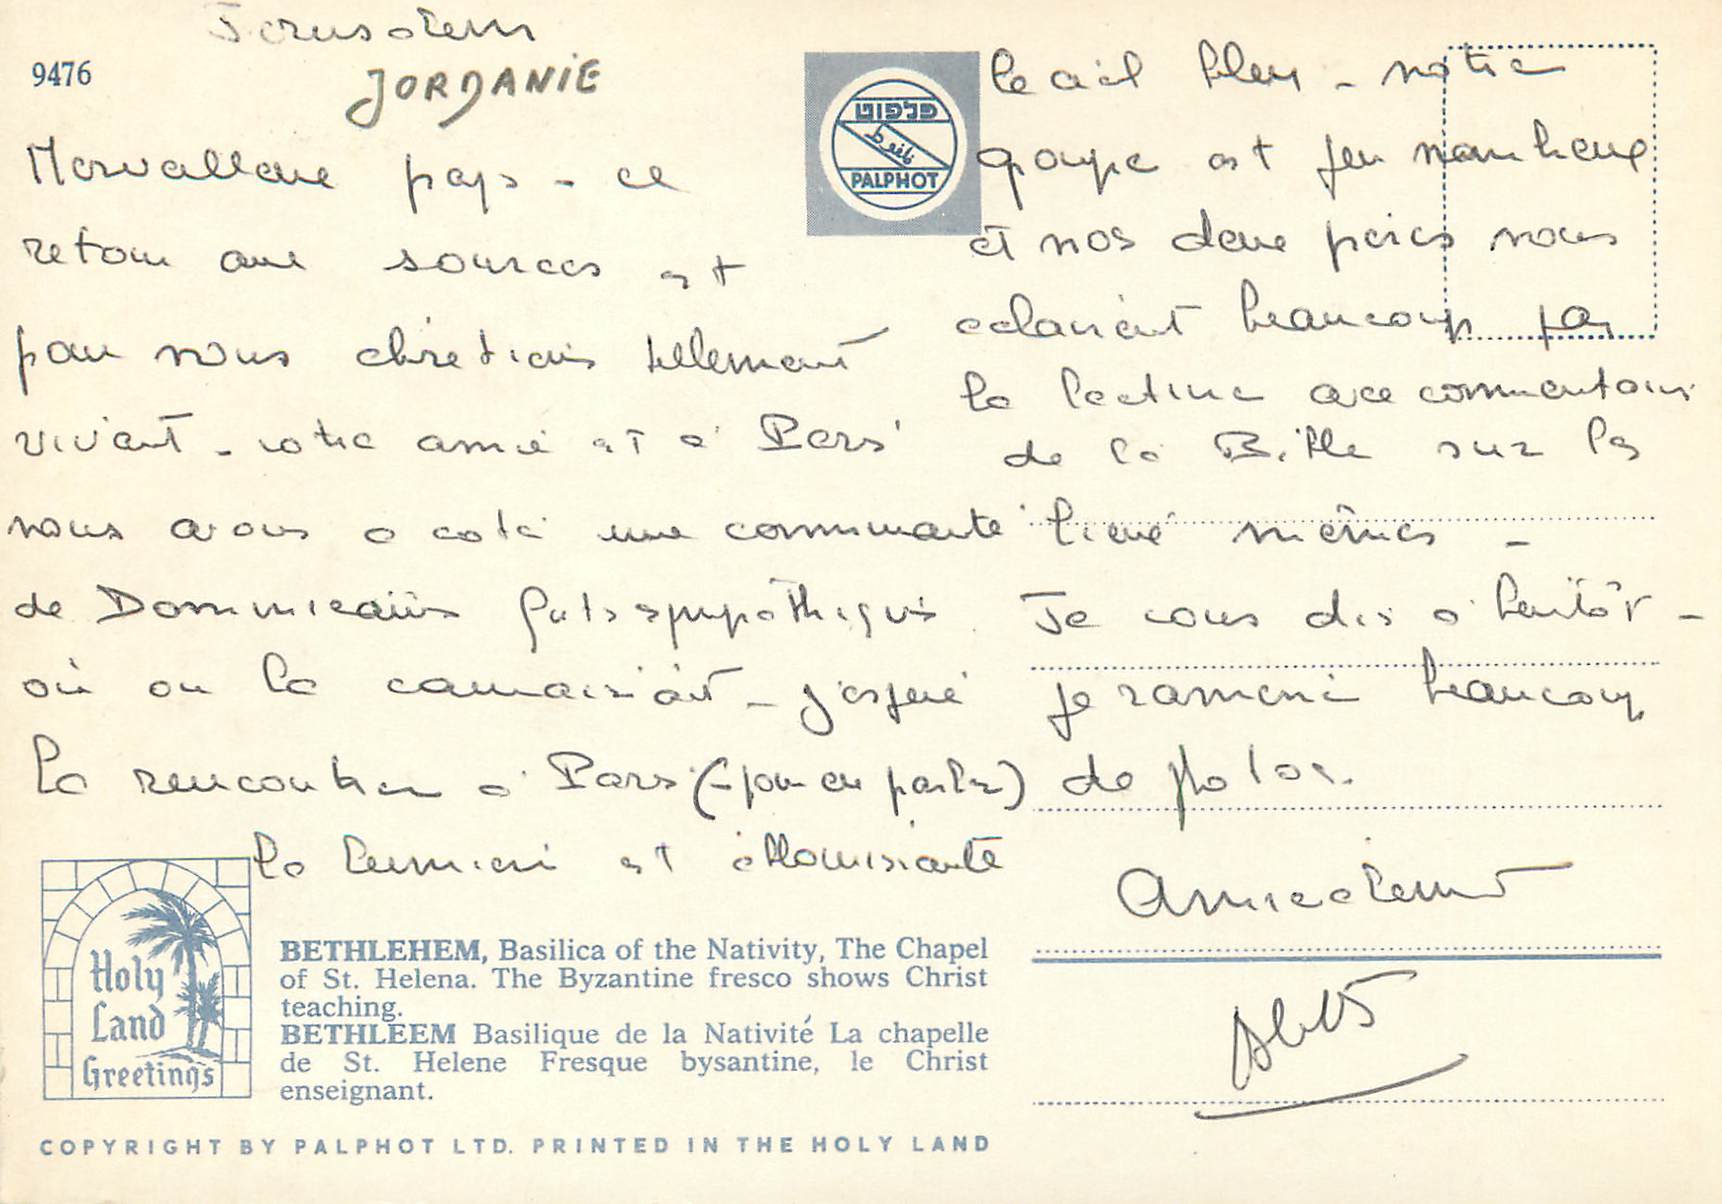 Jerusalem
JORDANIE
9476
Merveilleux pays - ce
retour aux sources est
pour nous chrétiens tellement
vivant - votre amie est à Paris
nous avons a coté une communauté
de Dominicains sympathiques
où on la connaissait - j'espère
la rencontrer à Paris (pour en parler)
la lumière est éblouissante
le ciel bleu - notre
groupe est peu nombreux
et nos deux pères nous
éclairent beaucoup par
la lecture avec commentaires
de la Bible sur les
lieux mêmes -
Je vous dis à bientôt -
je ramène beaucoup
de photos.
Amicalement
פלפוט
PALPHOT
Holy
Land
Greetings
BETHLEHEM, Basilica of the Nativity, The Chapel
of St. Helena. The Byzantine fresco shows Christ
teaching.
BETHLEEM Basilique de la Nativité La chapelle
de St. Helene Fresque bysantine, le Christ
enseignant.
COPYRIGHT BY PALPHOT LTD. PRINTED IN THE HOLY LAND